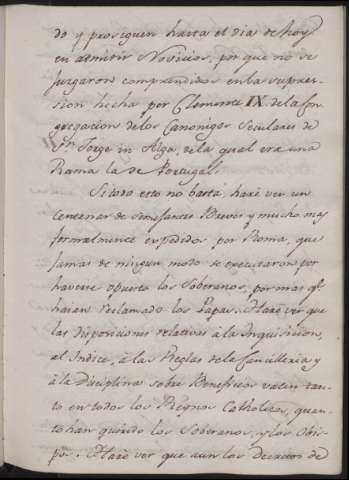 do y prosiguen hasta el dia de hoy
en admitir Novicios, por que no se
juzgaron comprendidos en la supres-
sion hecha por Clemente IX. de la Con
gregacion de los Canonigos Seculares de
Sn. Jorge in Alga, de la qual era una
Rama la de Portugal.
Si todo esto no basta, haré ver un
Centenar de semejantes Breves y mucho mas
formalmente expedidos por Roma, que
jamas de ningun modo se executaron por
haverse opuesto los Soberanos, por mas qe.
hàian reclamado los Papas. Harè ver que
las disposiciones relativas à la Inquisicion,
al Indice, à las Reglas de la Cancilleria y
à la Disciplina sobre Beneficios valen tan-
to en todos los Reynos Catholicos, quan-
to han querido los Soberanos, y los Obis-
pos. Harè ver que aun los decretos de